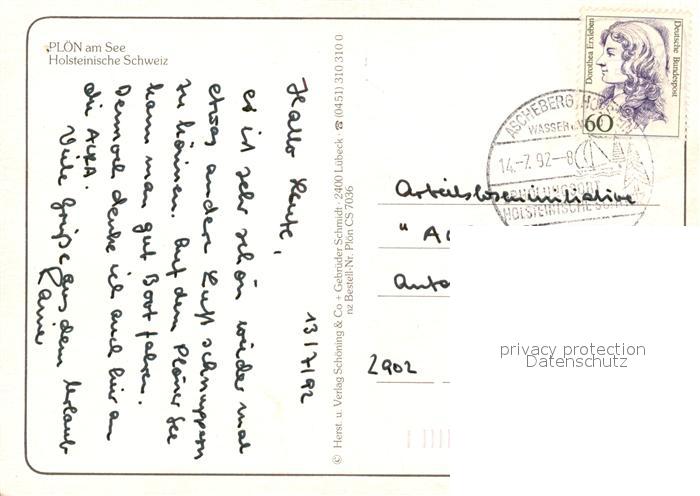 PLÖN am See
Holsteinische Schweiz
13/7/92
Hallo Leute,
es ist sehr schön wieder mal
etwas andere Luft schnuppern
zu können. Auf dem Plöner See
kann man gut Boot fahren.
Dennoch denke ich auch hier an
die ALSA.
Viele Grüße aus dem Urlaub
Rainer
© Herst. u. Verlag Schöning & Co + Gebrüder Schmidt · 2400 Lübeck · ☎ (0451) 310 310 0
nz Bestell-Nr. Plön CS 7036
Dorothea Erxleben
Deutsche Bundespost
60
ASCHEBERG, HOLST
WASSER
14.-7.92-8
HOLSTEINISCHE
Arbeitsloseninitiative
"A
Anto
2902
privacy protection
Datenschutz